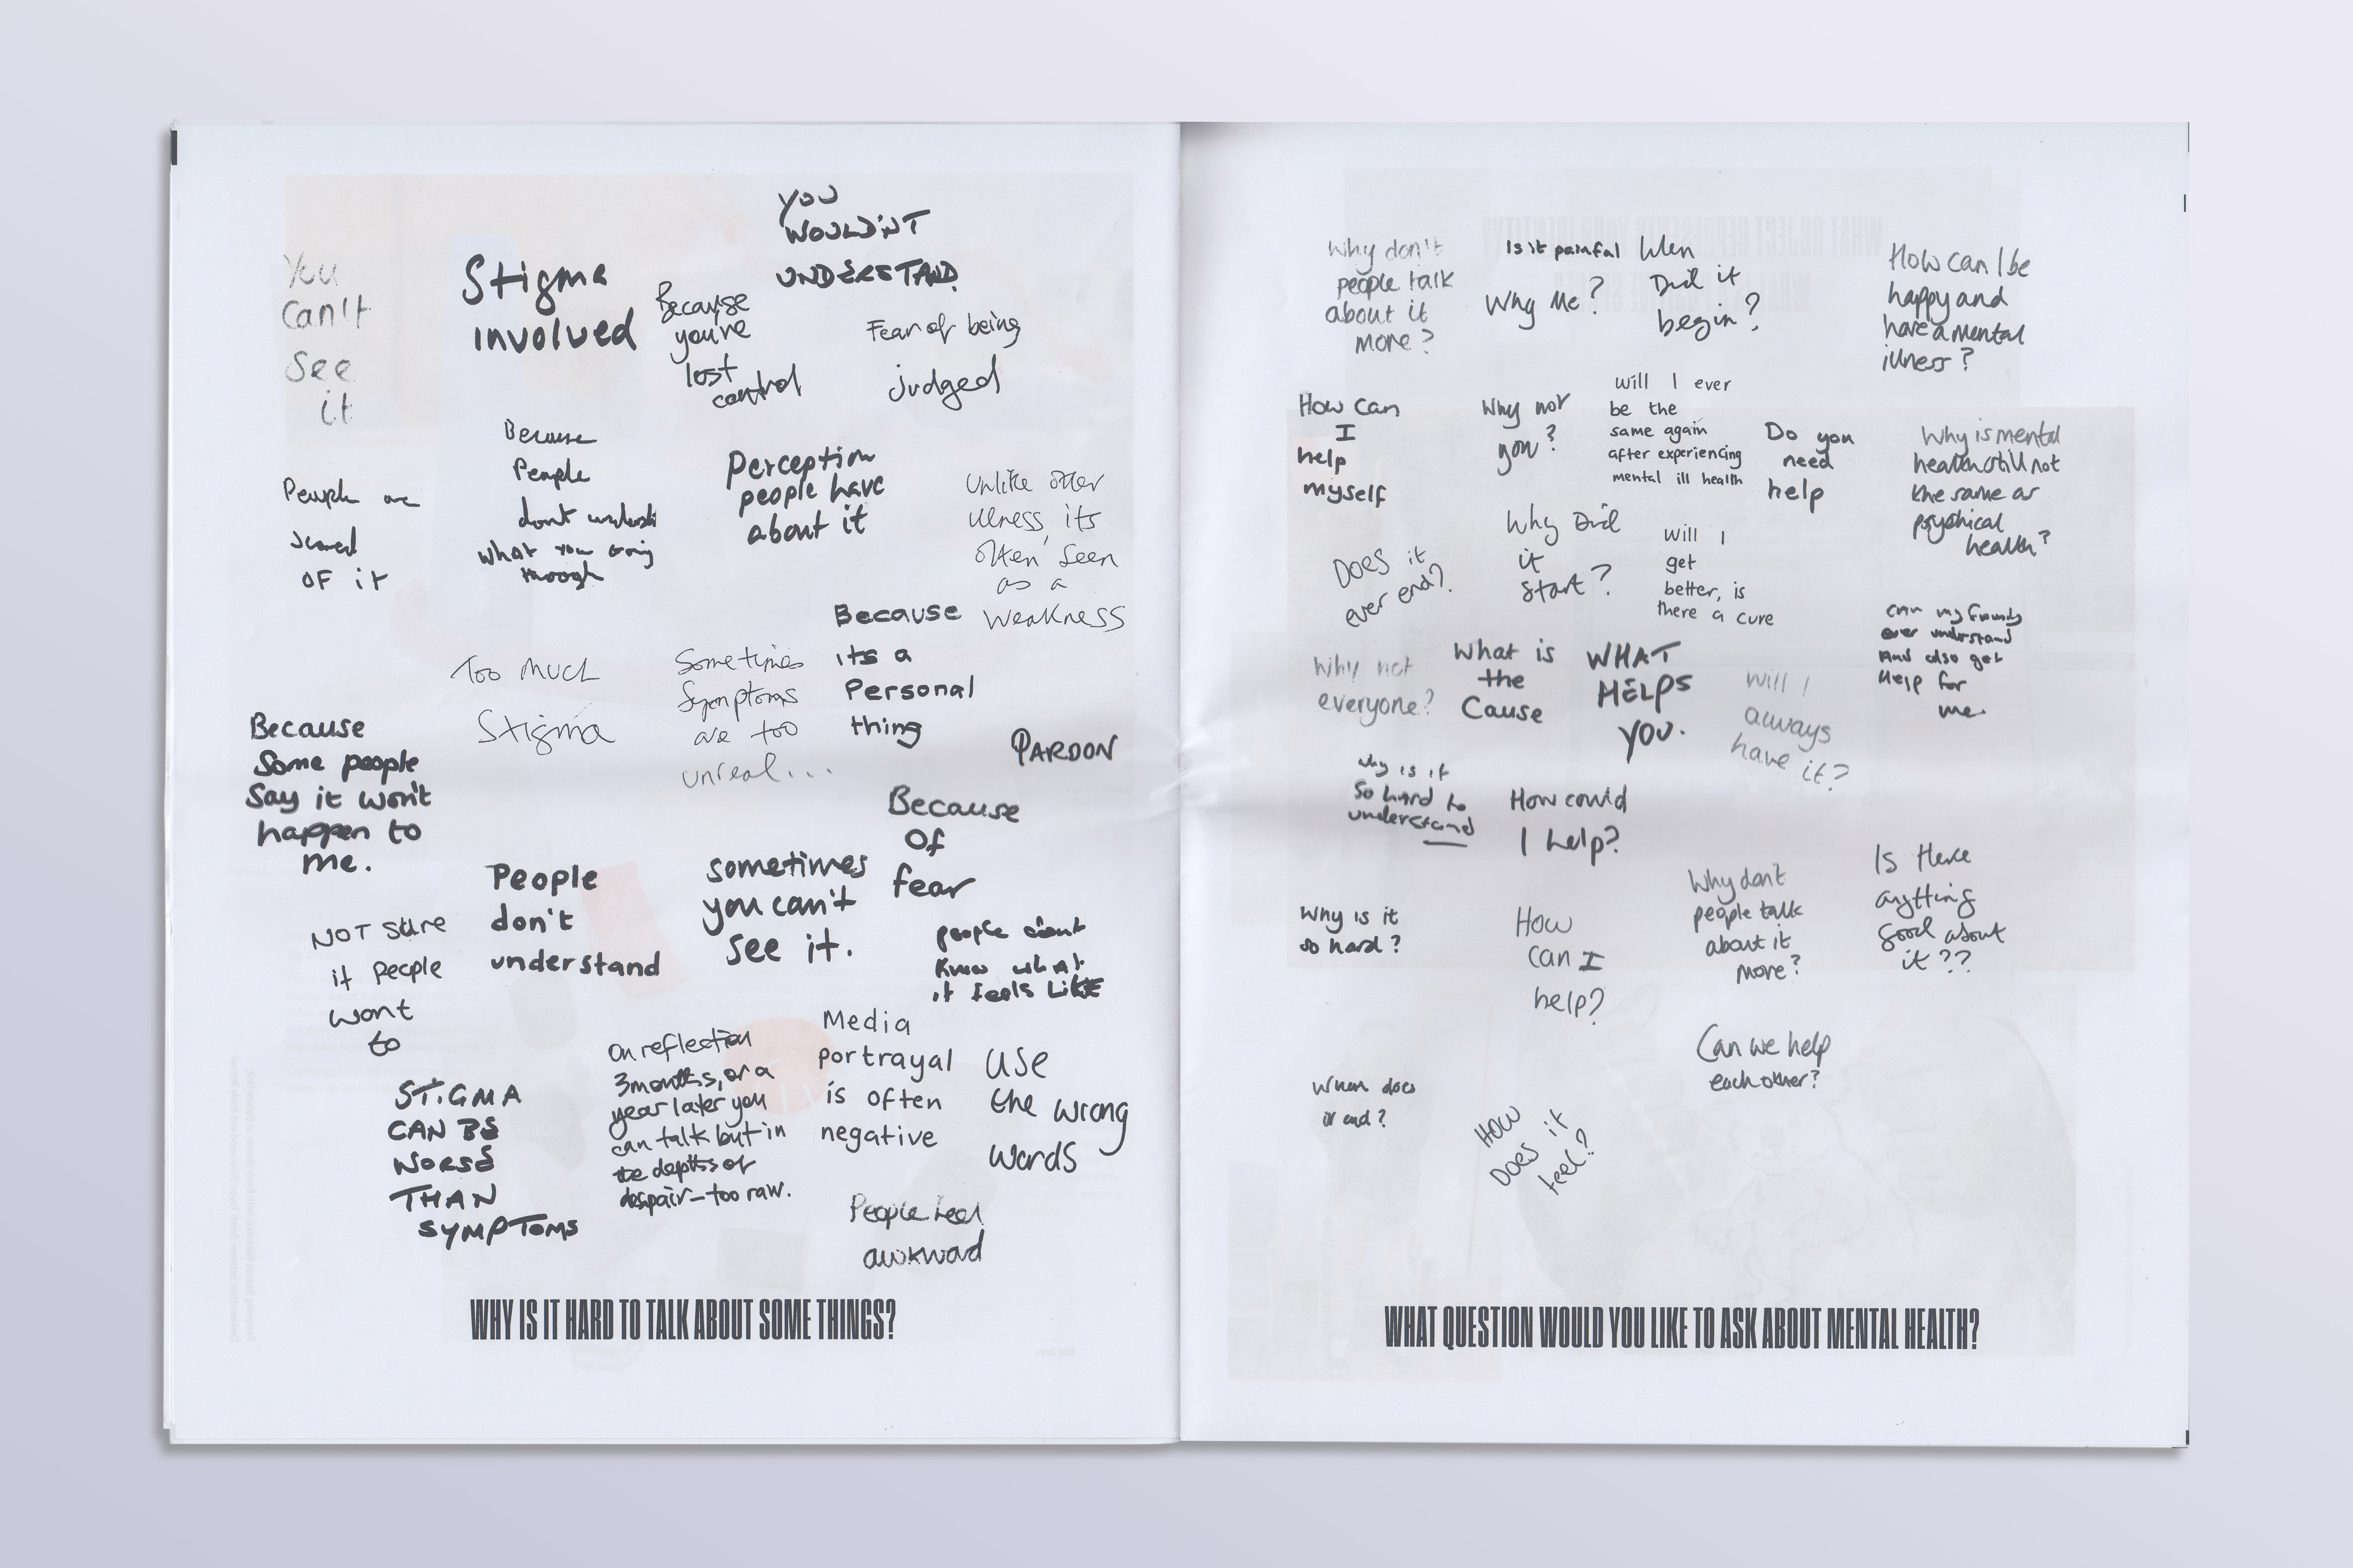 You
Can't
See
it
Stigma
involved
YOU
WOULDN'T
UNDERSTAND.
Because
you're
lost
control
Fear of being
judged
People are
scared
OF it
Because
People
dont understa
what you going
through
Perception
people have
about it
Unlike other
illness, its
often seen
as a
weakness
Too much
Stigma
Sometimes
Symptoms
are too
unreal...
Because
its a
Personal
thing
PARDON
Because
Some people
Say it won't
happen to
me.
NOT sure
if people
want
to
People
don't
understand
sometimes
you can't
see it.
Because
Of
fear
people don't
know what
it feels LIKE
STIGMA
CAN BE
WORSE
THAN
SYMPTOMS
On reflection
3 months, or a
year later you
can talk but in
the depths of
despair - too raw.
Media
portrayal
is often
negative
use
the wrong
words
People feel
awkward
WHY IS IT HARD TO TALK ABOUT SOME THINGS?
Why don't
people talk
about it
more?
Is it painful
Why Me?
When
Did it
begin?
How can I be
happy and
have a mental
illness?
How Can
I
help
myself
Why not
you?
Will I ever
be the
same again
after experiencing
mental ill health
Do you
need
help
Why is mental
health still not
the same as
psychical
health?
Does it
ever end?
Why Did
it
start?
Will I
get
better, is
there a cure
can my family
ever understand
And also get
Help for
me.
Why not
everyone?
What is
the
Cause
WHAT
HELPS
YOU.
Will I
always
have it?
Why is it
So hard to
understand
How could
I help?
Why is it
so hard?
How
can I
help?
Why don't
people talk
about it
more?
Is there
anything
good about
it??
Can we help
each other?
When does
it end?
How
Does it
feel?
WHAT QUESTION WOULD YOU LIKE TO ASK ABOUT MENTAL HEALTH?